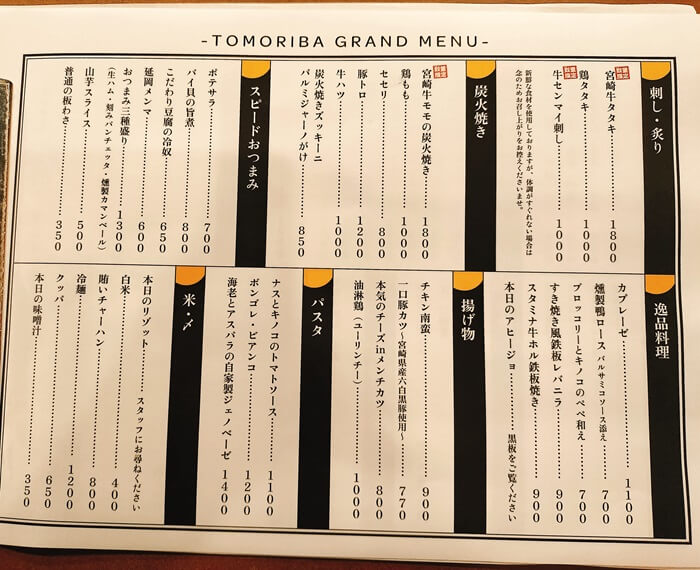 -TOMORIBA GRAND MENU-
刺し・炙り
宮崎牛タタキ 1800
鶏タタキ 1000
牛センマイ刺し 1000
新鮮な食材を使用しておりますが、体調がすぐれない場合は
念のためお召し上がりをお控えくださいませ。
炭火焼き
宮崎牛モモの炭火焼き 1800
鶏もも 1000
セセリ 800
豚トロ 1200
牛ハツ 1000
炭火焼きズッキーニ
パルミジャーノがけ 850
スピードおつまみ
ポテサラ 700
バイ貝の旨煮 800
こだわり豆腐の冷奴 650
延岡メンマ 600
おつまみ三種盛り 1300
（生ハム・刻みパンチェッタ・燻製カマンベール）
山芋スライス 500
普通の板わさ 350
逸品料理
カプレーゼ 1100
燻製鴨ロース バルサミコソース添え 700
ブロッコリーとキノコのペペ和え 700
すき焼き風鉄板レバニラ 900
スタミナ牛ホル鉄板焼き 900
本日のアヒージョ 黒板をご覧ください
揚げ物
チキン南蛮 900
一口豚カツ～宮崎県産六白黒豚使用～ 770
本気のチーズinメンチカツ 800
油淋鶏（ユーリンチー） 1000
パスタ
ナスとキノコのトマトソース 1100
ボンゴレ・ビアンコ 1200
海老とアスパラの自家製ジェノベーゼ 1400
米・〆
本日のリゾット スタッフにお尋ねください
白米 400
賄いチャーハン 800
冷麺 1200
クッパ 650
本日の味噌汁 350